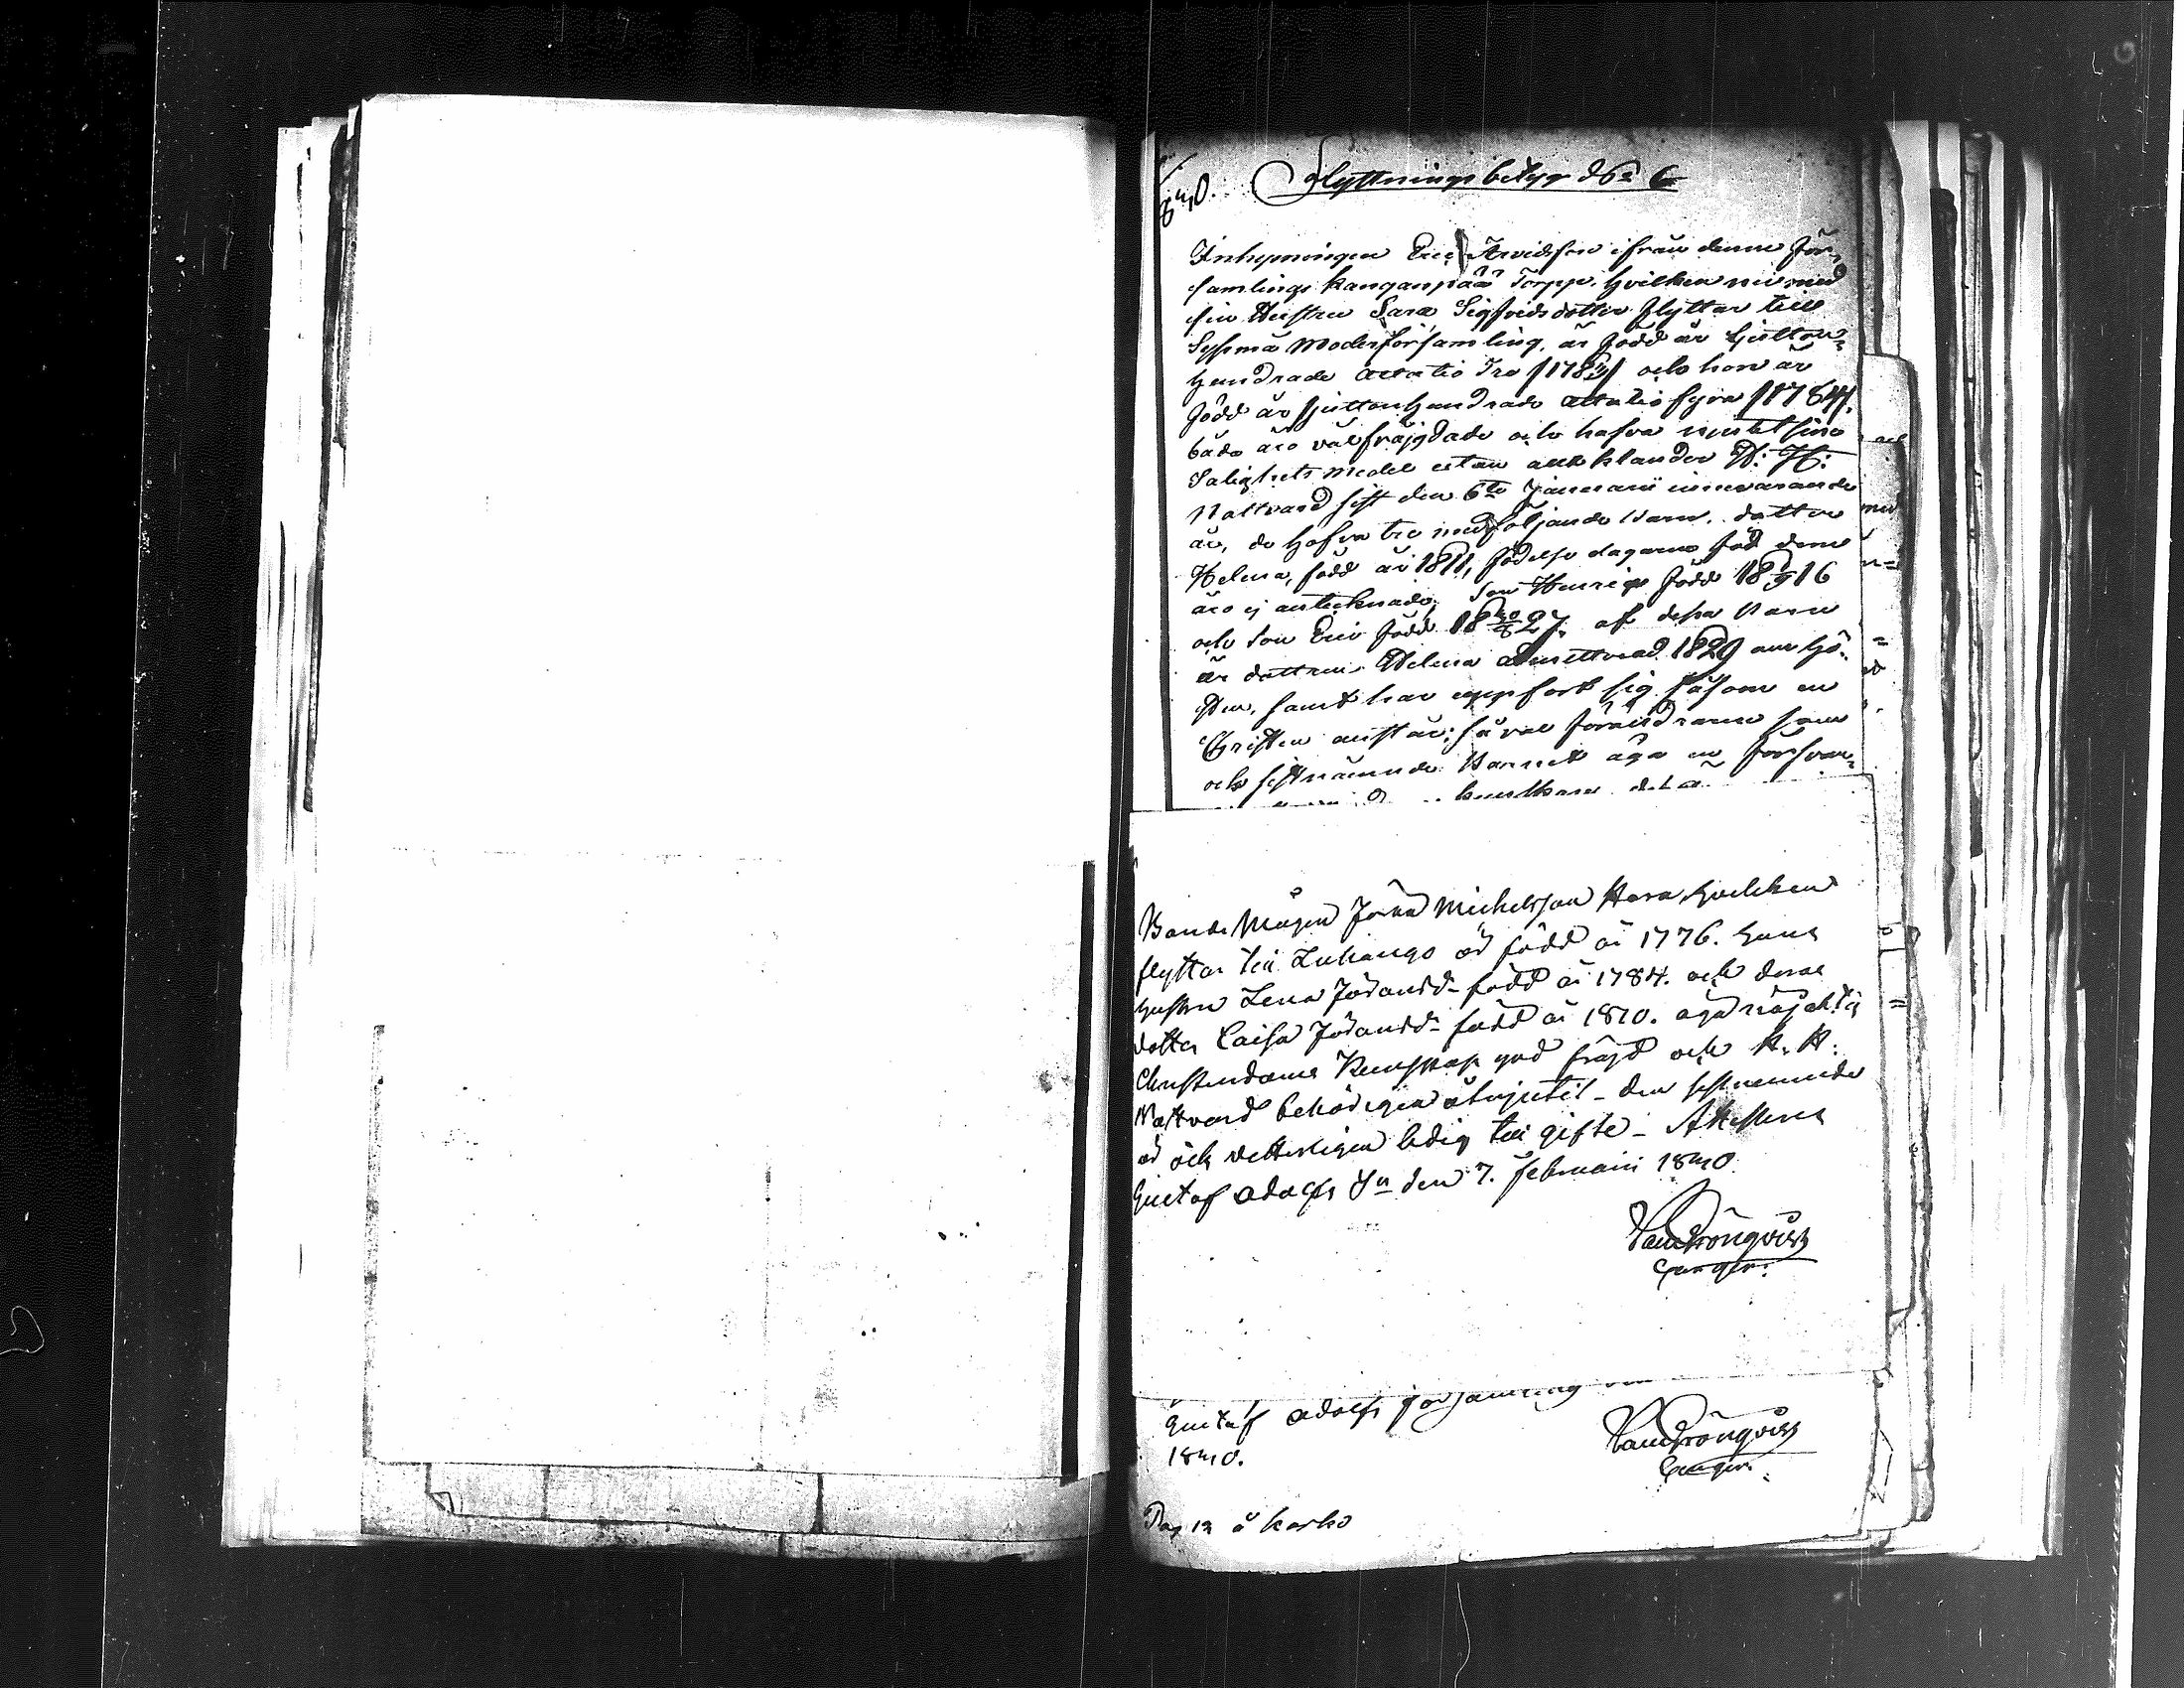 1840. Flyttnings betyg No 6
Inhysningen Eric Arvidsson ifrån denne För-
samlings Kangaspää Torpp, hvilken nu med
sin Hustru Sara Sigfridsdotter flyttar till
Sysmä Moderförsamling, är född år sjutton-
hundrade åttatio Tre /1783/ och hon är
född år sjuttonhundrade åttatio fyra /1784/.
båda äro välfräjgdade och hafva nyttat sine
Salighets medel utan allt klander D: H:
Nattvard sist den 6te Januarii innevarande
år, de hafva tre medföljande Barn, dottren
Helena, född år 1811, födelse dagarne
äro ej antecknade, Son Henric född 18 16
och Son Eric född 18 27, af dessa Barn
är dottren Helena admitterad 1829 om Hö-
sten, samt har uppfört sig såsom en
Christen anstår; såväl föräldrarne som
och sistnämnde Barnet äga en försvar-
kunskap
Bonde Mågen Jöran Michelsson Hara, hvilken
flyttar till Luhango är född år 1776. hans
hustru Lena Jöransd- född år 1784. och deras
dotter Caisa Jöransd- född år 1810. äga nöjaktig
Christendoms Kunskap god fräjd och H. H:
Nattvard behörigen åtnjutit - den sistnemnde
är och vetterligen ledig till gifte - Attesteras
Gustaf Adolfs den 7. Februarii 1840.
Gustaf Adolfs församling
1840.
Pag 12 å Karho